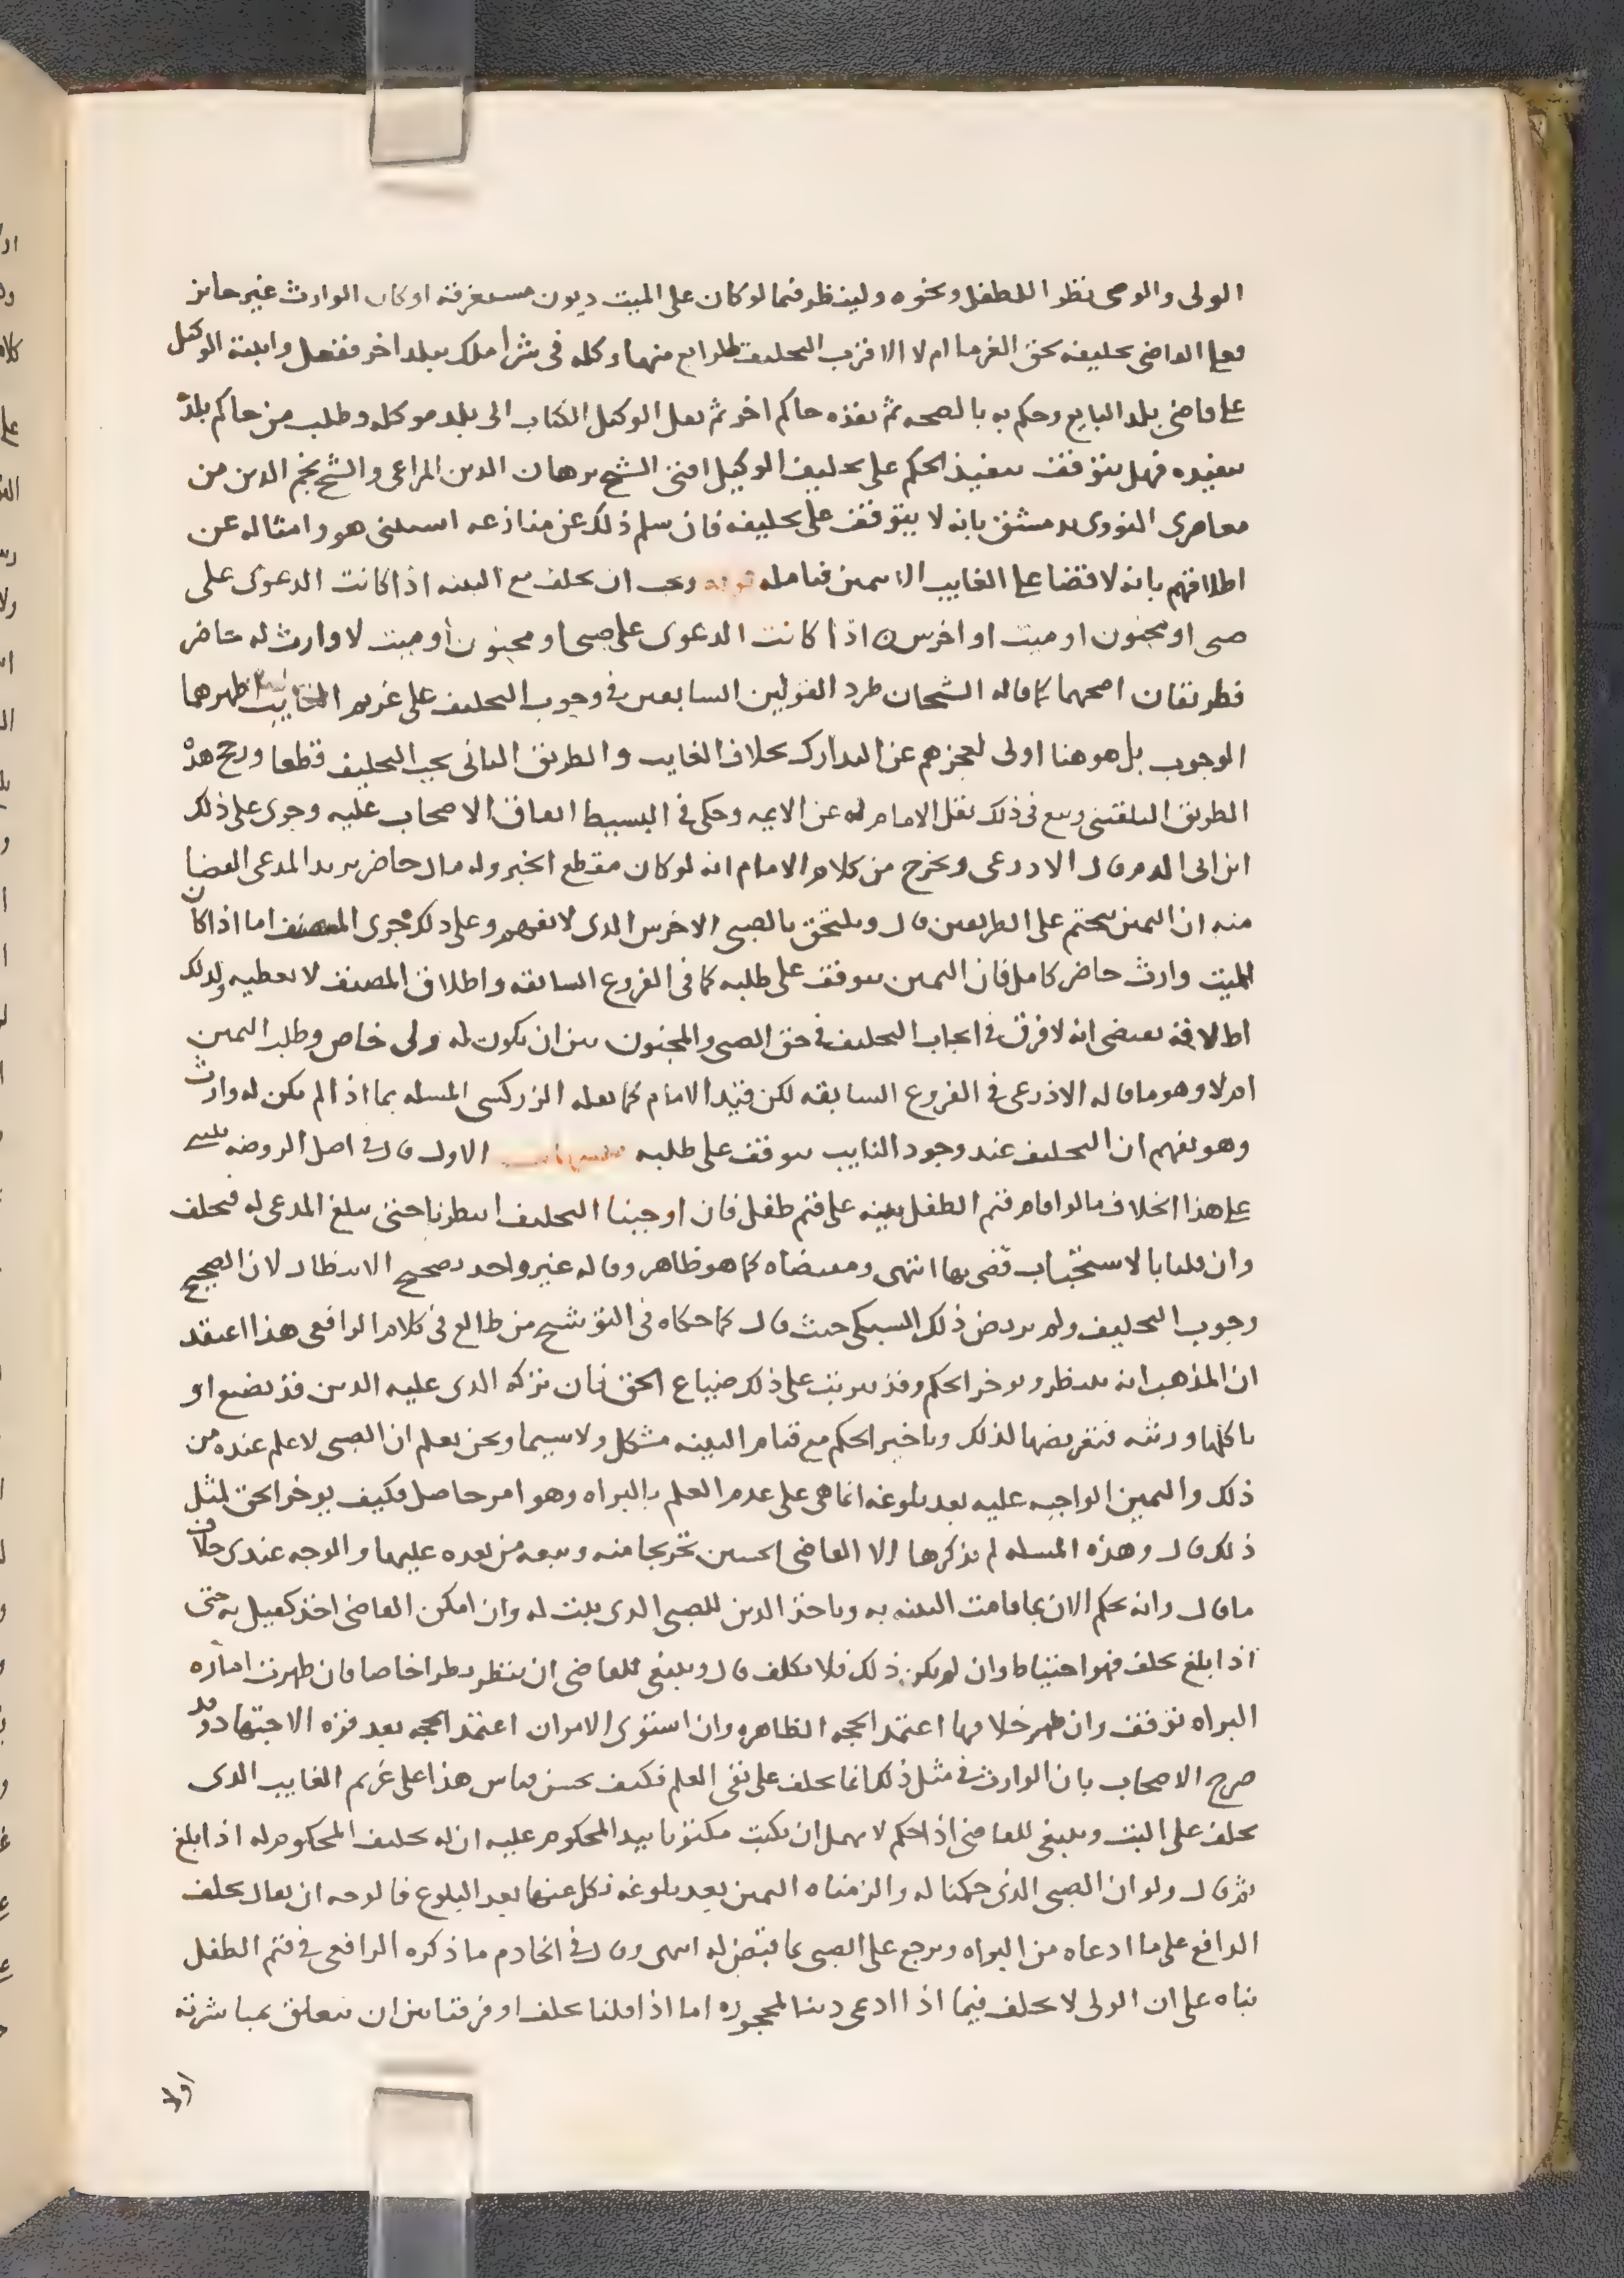 الولى والوصى نظرا للطفل ونحوه ولينظر فيما لو كان على الميت ديون مستغرقة او كان الوارث غير حايز
فعلى القاضى تحليفه بحق الغرما ام لا الاقرب التحليف وكله فى شرا ملك ببلد اخر ففعل واثبته الوكيل
على قاضى بلد البايع وحكم به بالصحه ثم نفذه حاكم اخر ثم نقل الوكيل الكتاب الى بلد موكله وطلب من حاكم بلده
تنفيذه فهل يتوقف تنفيذ الحكم على تحليف الوكيل افتى الشيخ برهان الدين المراغى والشيخ نجم الدين من
معاصرى النووى بدمشق بانه لا يتوقف على تحليفه فان سلم ذلك عن منازعه استثنى هو وامثاله عن
اطلاقهم بانه لا قضا على الغايب الا بيمين فتامله ويجب ان يحلف مع البينه اذا كانت الدعوى على
صبى او مجنون او ميت او اخرس اذا كانت الدعوى على صبى او مجنون او ميت لا وارث له حاضر
فطريقان اصحهما كما قاله الشيخان طرد القولين السابقين فى وجوب التحليف على غريم الغايب اظهرهما
الوجوب بل هو هنا اولى لعجزهم عن التدارك بخلاف الغايب والطريق الثانى يجب التحليف قطعا ورجح هذه
الطريق البلقينى وتبع فى ذلك نقل الامام له عن الايمه وحكى فى البسيط اتفاق الاصحاب عليه وجرى على ذلك
ابن ابى الدم وقال الاذرعى ويخرج من كلام الامام انه لو كان منقطع الخبر وله مال حاضر يريد المدعى القضا
منه ان اليمين تحتم على الطريقين قال ويلتحق بالصبى الاخرس الذى لا يفهم وعلى ذلك جرى المصنف اما اذا كان
للميت وارث حاضر كامل فان اليمين يتوقف على طلبه كما فى الفروع السابقه واطلاق المصنف لا يعطيه ولذلك
اطلاقه يقتضى انه لا فرق فى ايجاب التحليف فى حق الصبى والمجنون بين ان يكون له ولى خاص وطلب اليمين
ام لا وهو ما قاله الاذرعى فى الفروع السابقه لكن قيد الامام كما نقله الزركشى المسله بما اذا لم يكن له وارث
وهو يفهم ان التحليف عند وجود النايب يتوقف على طلبه الاول قال فى اصل الروضه يبنى
على هذا الخلاف ما لو اقام قيم الطفل بينه على قيم طفل فان اوجبنا التحليف انتظرنا حتى يبلغ المدعى له فيحلف
وان قلنا بالاستحباب قضى بها انتهى ومقتضاه كما هو ظاهر وقاله غير واحد تصحيح الانتظار لان الصحيح
وجوب التحليف ولم يرتض ذلك السبكى حيث قال كما حكاه فى التوشيح من طالع فى كلام الرافعى هذا اعتقد
ان المذهب انه ينتظر ويوخر الحكم وقد يترتب على ذلك ضياع الحق فان تركه الذى عليه الدين قد تضيع او
ياكلها ورثته فتعريضها لذلك وتاخير الحكم مع قيام البينه مشكل ولا سيما ونحن نعلم ان الصبى لا علم عنده من
ذلك واليمين الواجبه عليه بعد بلوغه انما هى على عدم العلم بالبراه وهو امر حاصل فكيف يوخر الحق لمثل
ذلك قال وهذه المسله لم يذكرها الا القاضى الحسين تخريجا منه وتبعه من بعده عليها والوجه عندى خلاف
ما قال وانه يحكم الان بما قامت البينه به وياخذ الدين للصبى الذى يثبت له وان امكن القاضى اخذ كفيل به حتى
اذا بلغ يحلف فهو احتياط وان لم يكن ذلك فلا يكلف قال وينبغى للقاضى ان ينظر نظرا خاصا فان ظهرت اماره
البراه توقف وان ظهر خلافها اعتمد الحجه الظاهره وان استوى الامران اعتمد الحجه بعد قوه الاجتهاد وقد
صرح الاصحاب بان الوارث فى مثل ذلك انما يحلف على نفى العلم فكيف يحسن قياس هذا على غريم الغايب الذى
يحلف على البت وينبغى للقاضى اذا حكم لا يهمل ان يكتب مكتوبا بيد المحكوم عليه ان له تحليف المحكوم له اذا بلغ
ثم قال ولو ان الصبى الذى حكمنا له والزمناه اليمين بعد بلوغه نكل عنها بعد البلوغ فالوجه ان يقال يحلف
الدافع على ما ادعاه من البراه ويرجع على الصبى بما قبض له انتهى وقال فى الخادم ما ذكره الرافعى فى قيم الطفل
بناه على ان الولى لا يحلف فيما اذا ادعى دينا لمحجوره اما اذا قلنا يحلف او فرقنا بين ان يتعلق بمباشرته